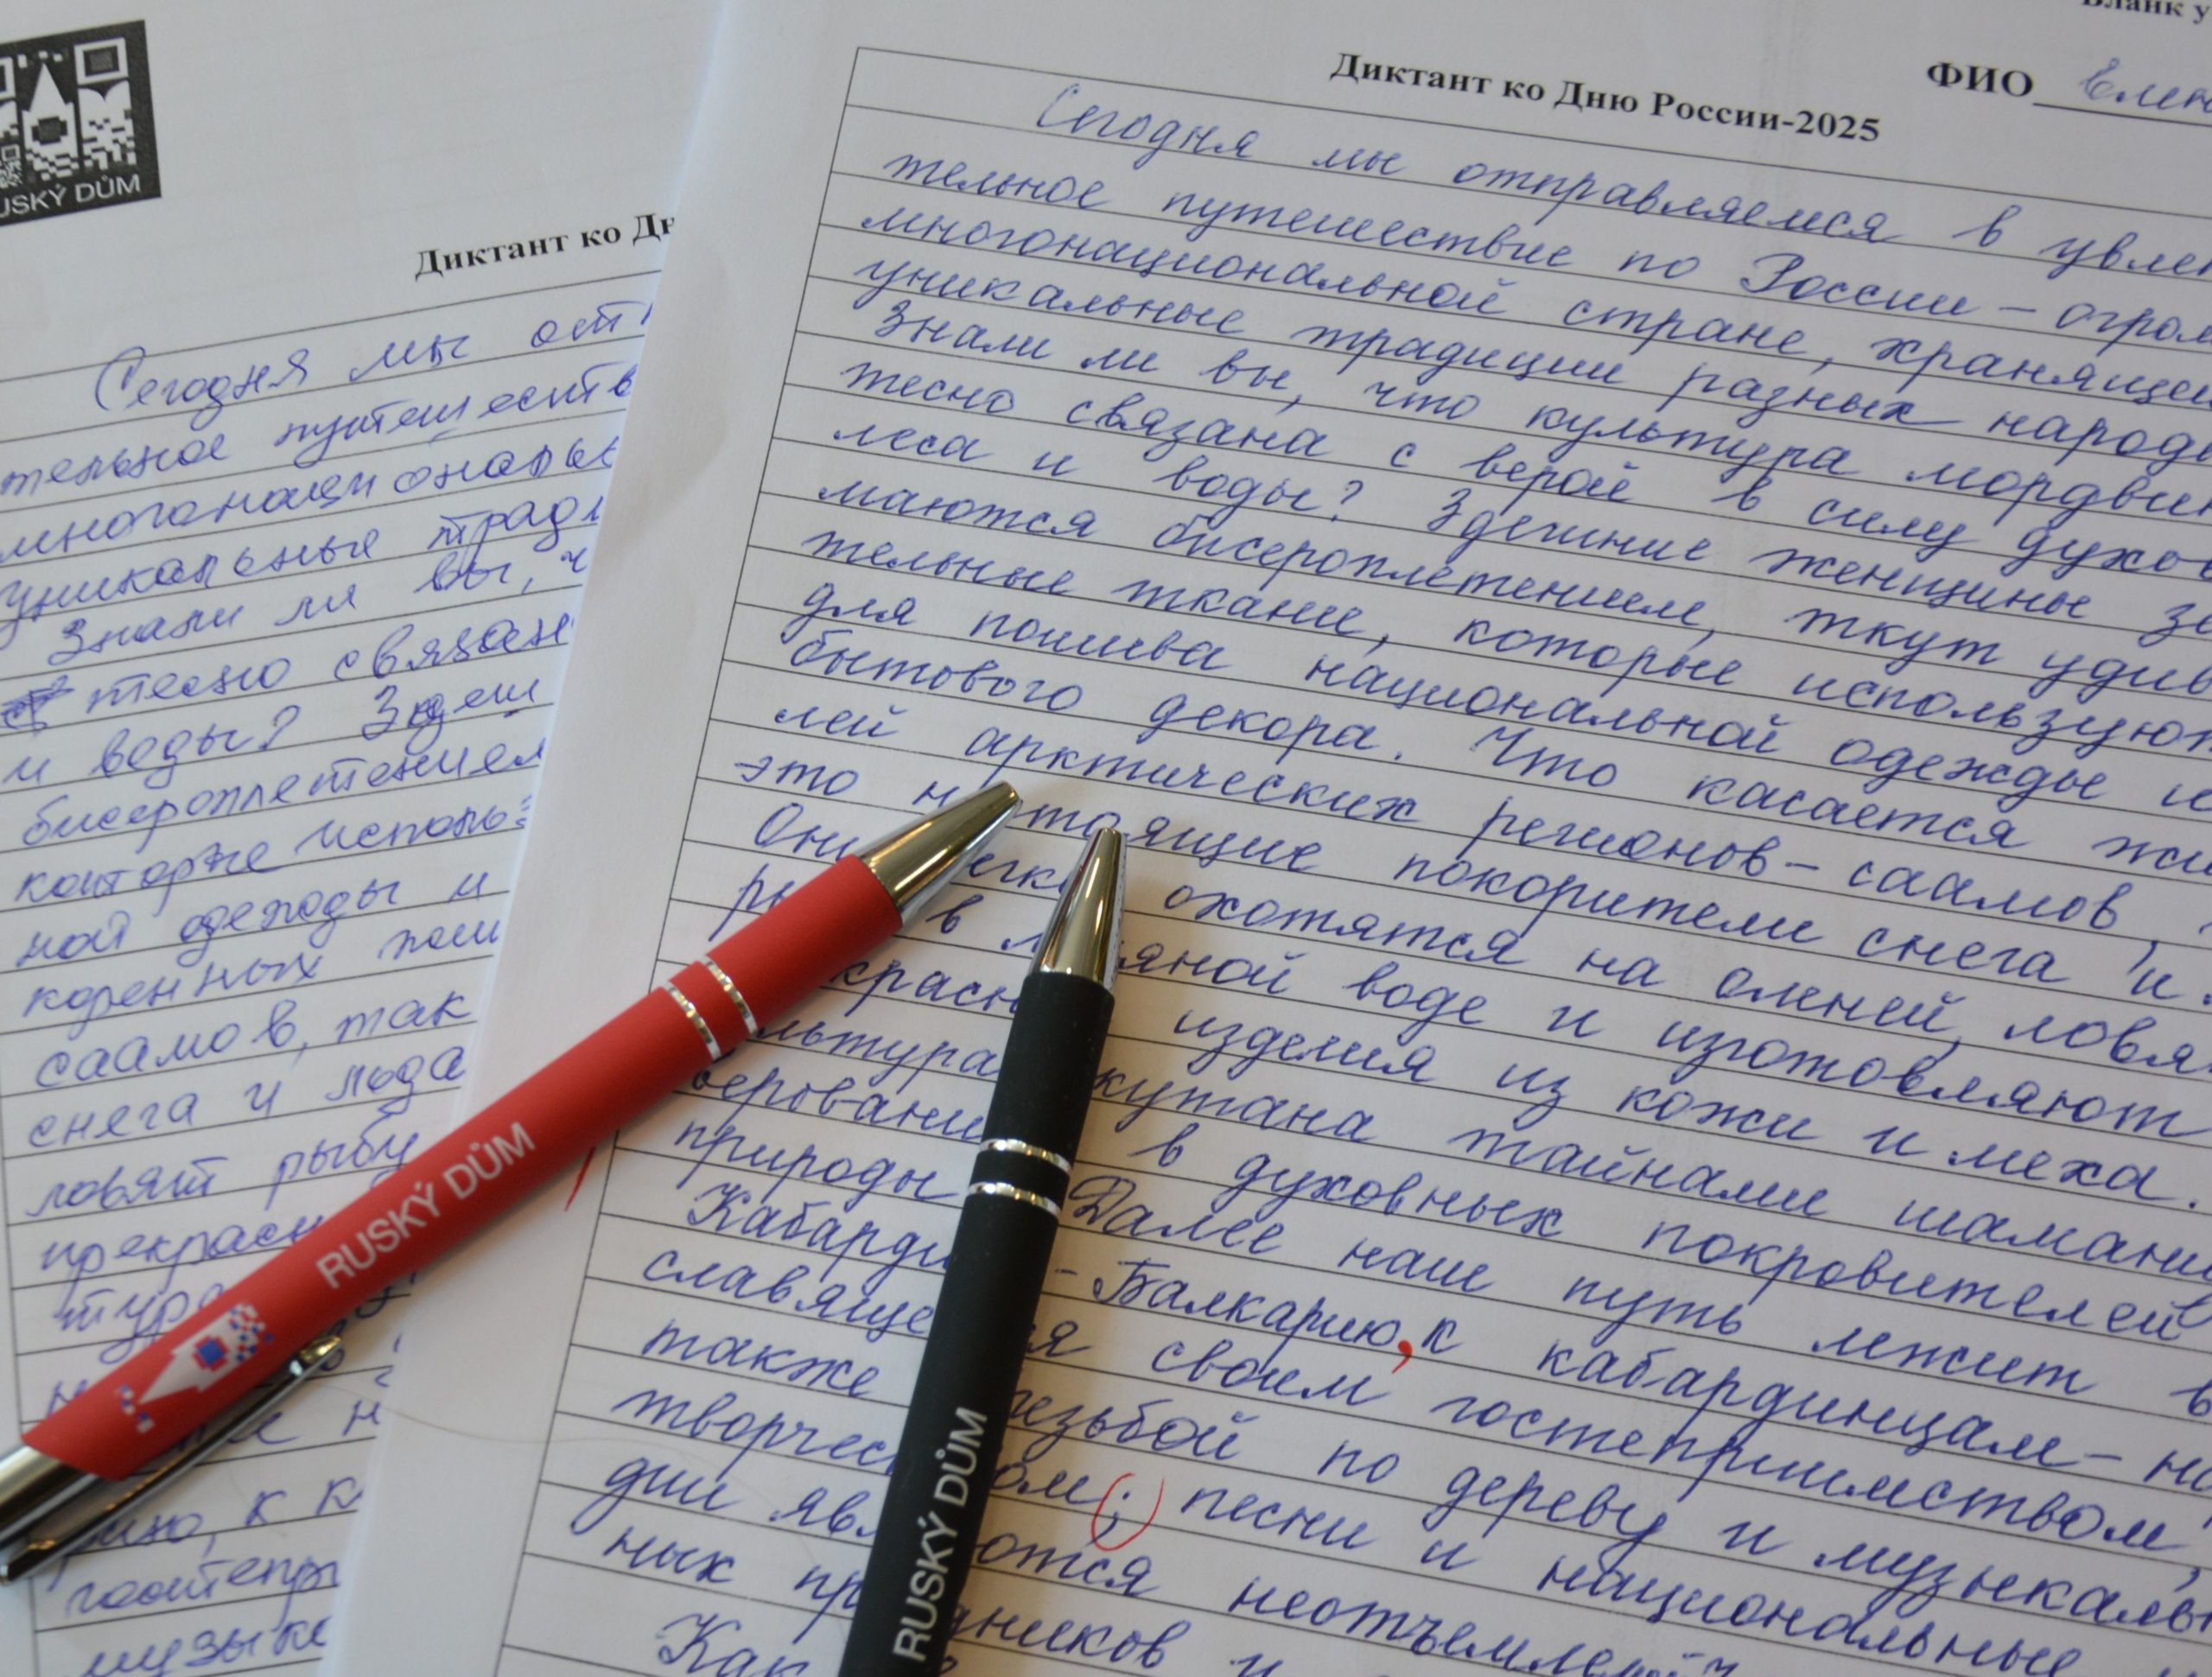 USKÝ DŮM
Диктант ко Дн
Сегодня мы отп
тельное путешеств
многонациональ
уникальные трад
Знали ли вы, ч
тесно связан
и воды? Здеш
бисероплетением
которые исполь
ной одежды и
коренных жи
саамов, так
снега и льда
ловят рыбу
прекрасн
тура
но, к к
гостепр
музыка
Бланк у
Диктант ко Дню России-2025
ФИО Елен
Сегодня мы отправляемся в увлек
тельное путешествие по России – огром
многонациональной стране, хранящей
уникальные традиции разных народо
Знали ли вы, что культура мордви
тесно связана с верой в силу духов
леса и воды? Здешние женщины за
маются бисероплетением, ткут удив
тельные ткани, которые использую
для пошива национальной одежды и
бытового декора. Что касается жи
лей арктических регионов – саамов,
это н тоящие покорители снега и
Они егк охотятся на оленей, ловя
ры в л яной воде и изготовляют
красн изделия из кожи и меха.
льтура кутана тайнами шамани
веровани в духовных покровителей
природы Далее наш путь лежит в
Кабарди -Балкарию, к кабардинцам – на
славяще я своим гостеприимством,
также резьбой по дереву и музыкаль
творчес ом; песни и национальные
дии явл ются неотъемлемой
ных пр дников и
Как
RUSKÝ DŮM
RUSKÝ DŮM